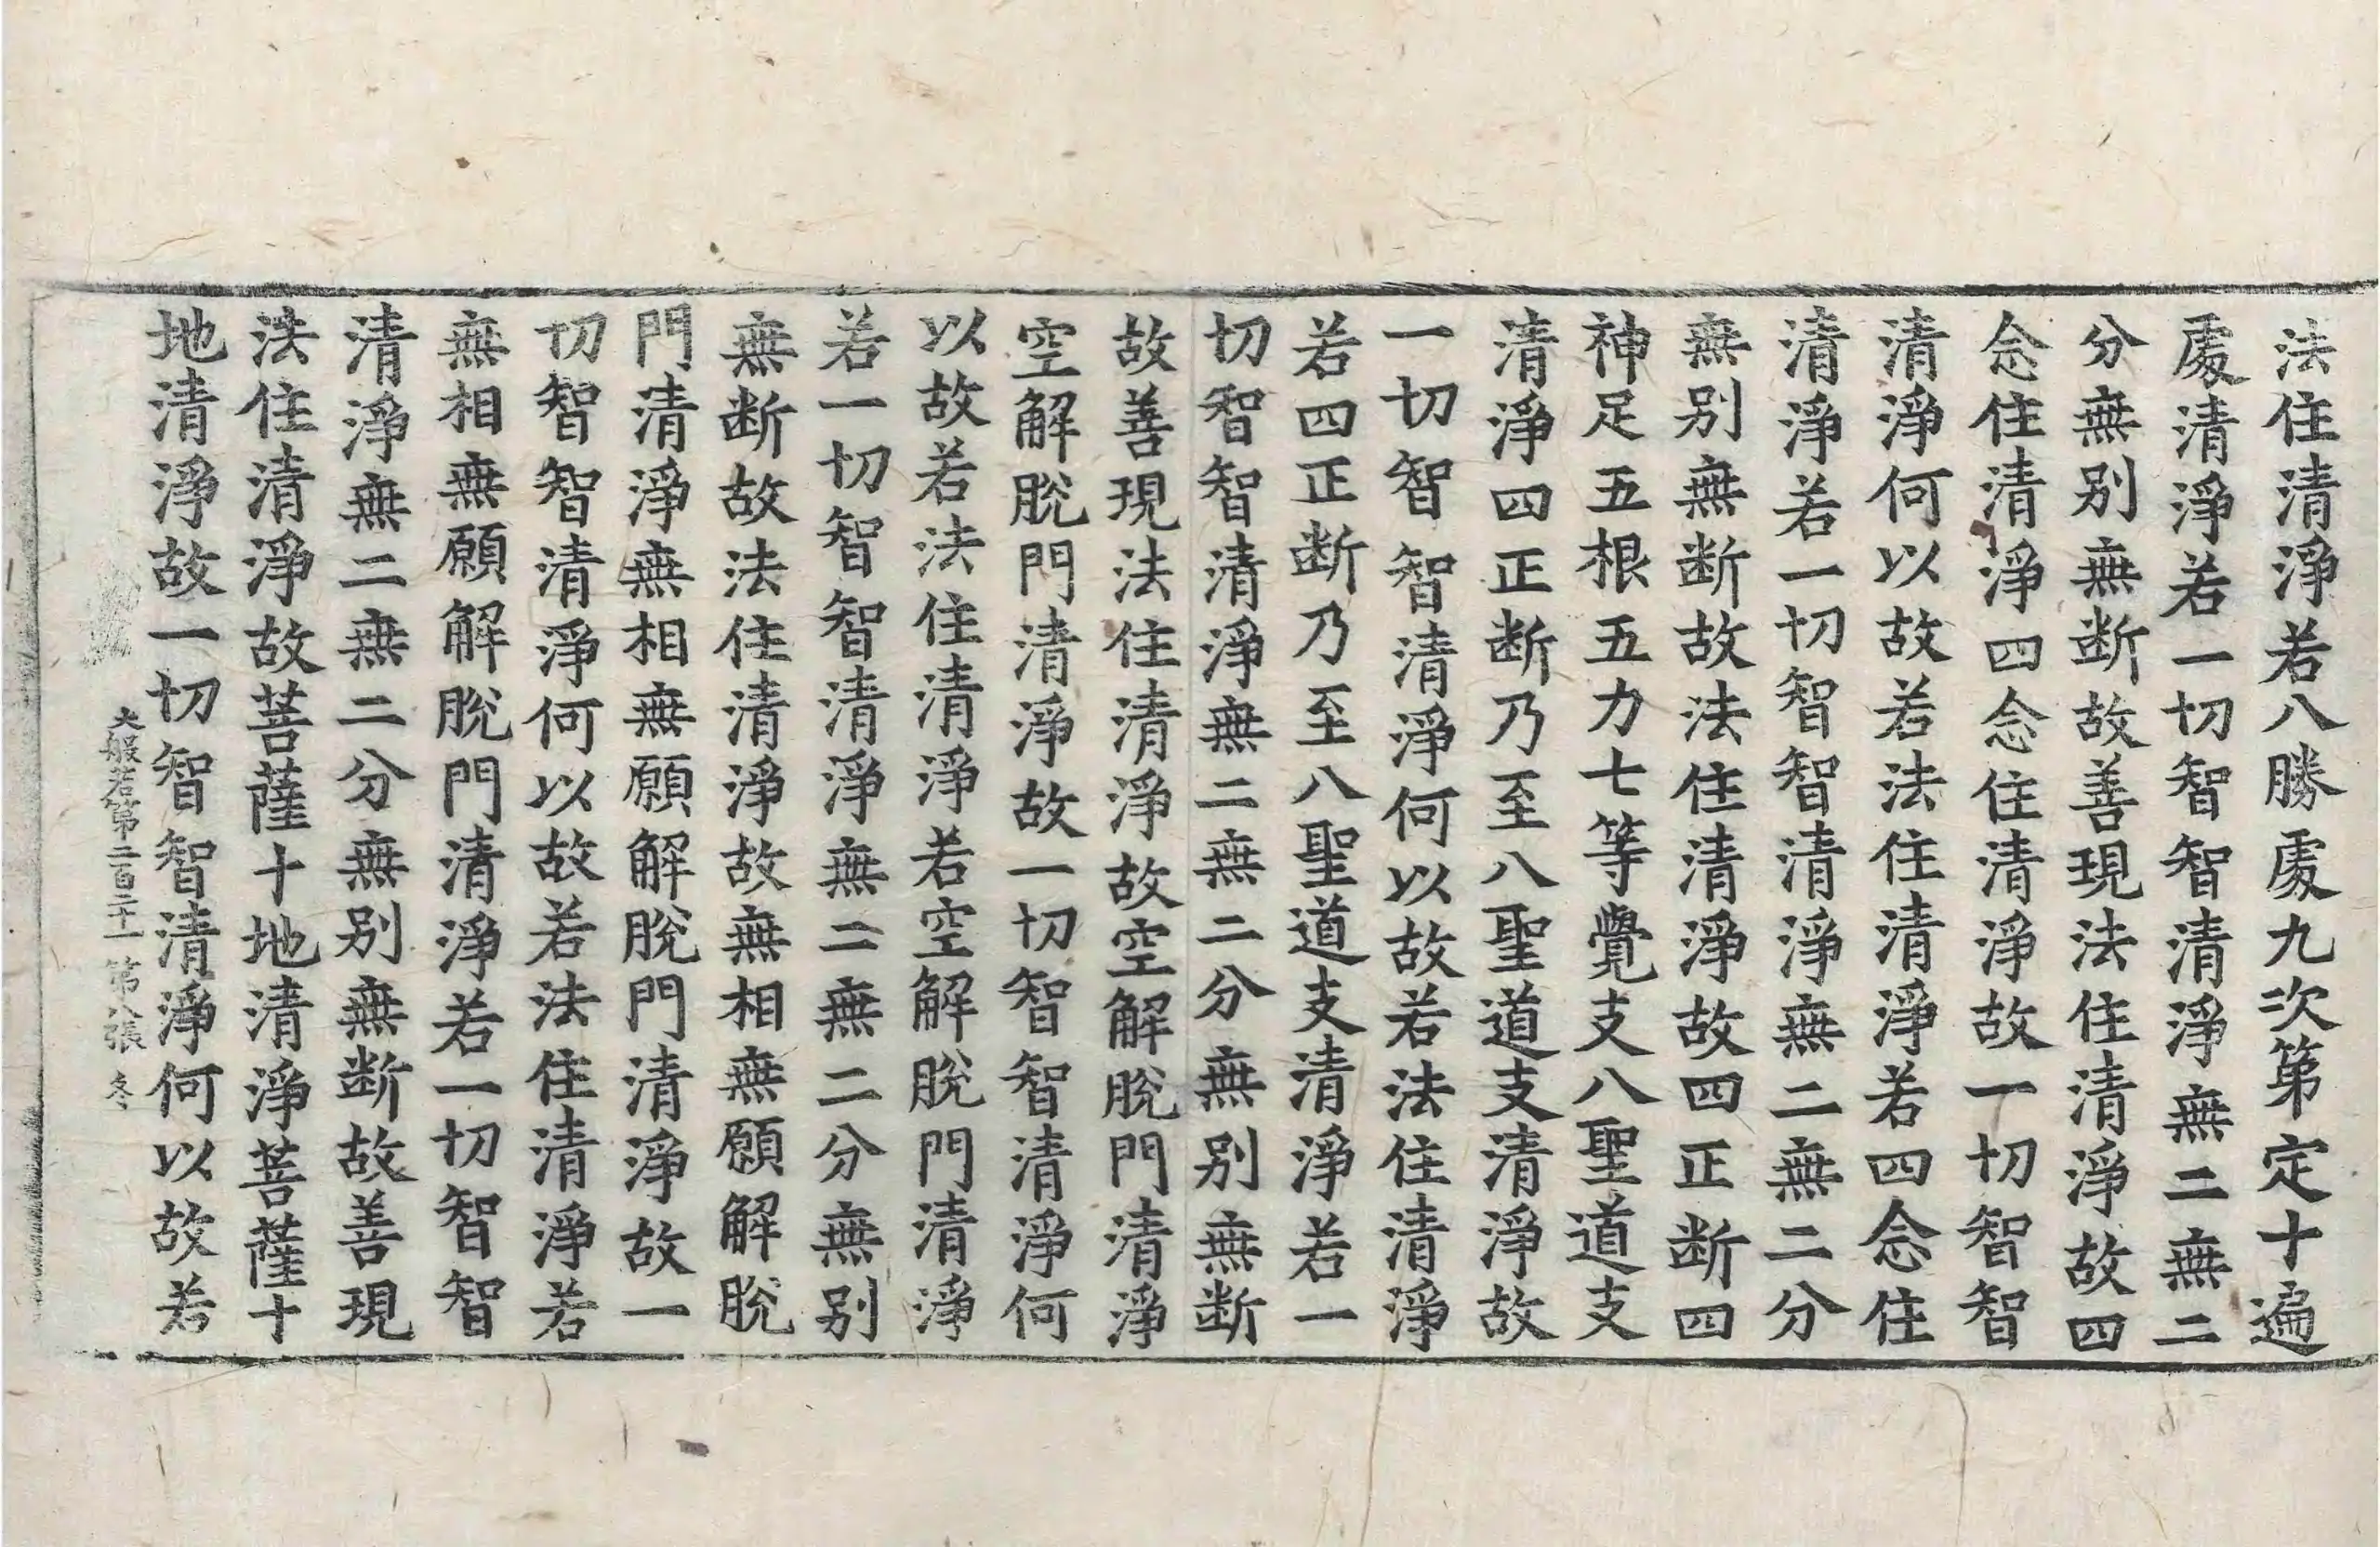 法住清淨若八勝處九次第定十遍
處清淨若一切智智清淨無二無二
分無別無断故善現法住清淨故四
念住清淨四念住清淨故一切智智
清淨何以故若法住清淨若四念住
清淨若一切智智清淨無二無二分
無別無断故法住清淨故四正断四
神足五根五力七等覺支八聖道支
清淨四正断乃至八聖道支清淨故
一切智智清淨何以故若法住清淨
若四正断乃至八聖道支清淨若一
切智智清淨無二無二分無別無断
故善現法住清淨故空解脫門清淨
空解脫門清淨故一切智智清淨何
以故若法住清淨若空解脫門清淨
若一切智智清淨無二無二分無別
無断故法住清淨故無相無願解脫
門清淨無相無願解脫門清淨故一
切智智清淨何以故若法住清淨若
無相無願解脫門清淨若一切智智
清淨無二無二分無別無断故善現
法住清淨故菩薩十地清淨菩薩十
地清淨故一切智智清淨何以故若
大般若第二百二十一 第八張 冬